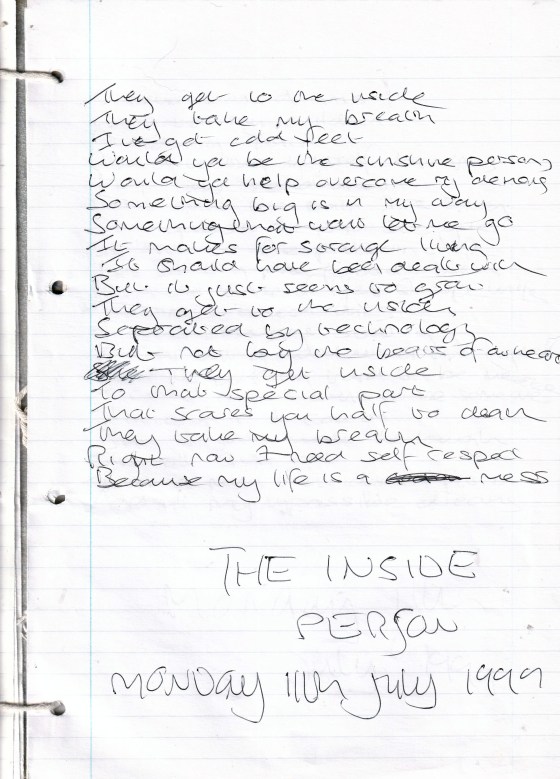 They get to the inside
They take my breath
I've got cold feet
Would ya be the sunshine person
Would ya help overcome my demons
Something big is in my way
Something that wont let me go
It makes for strange living
It should have been dealt with
But it just seems to grow
They get to the inside
Separated by technology
But not by the beats of a heart
They get inside
To that special part
That scares you half to death
They take my breath
Right now I need self respect
Because my life is a mess
THE INSIDE
PERSON
MONDAY 11th July 1999